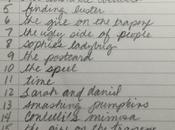 5 finding buster
6 the girl on the trapeze
7 the ugly side of people
8 sophie's ladybug
9 the postcard
10 the spell
11 time
12 Sarah and daniel
13 smashing pumpkins
14 mimosa
15 the girl on the